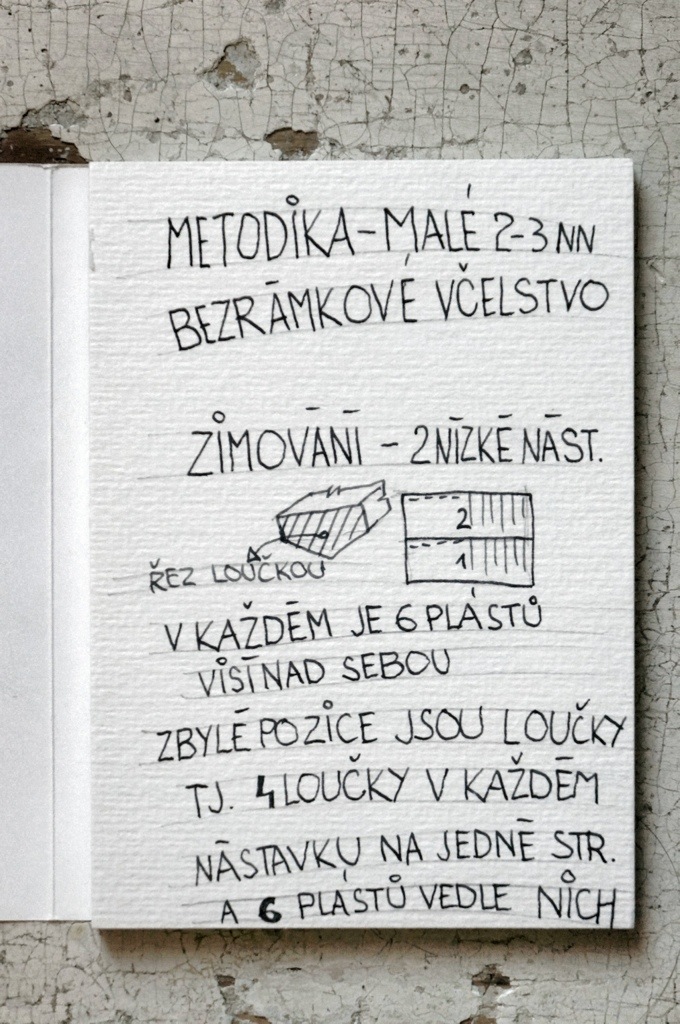 METODIKA-MALÉ 2-3 NN
BEZRÁMKOVÉ VČELSTVO
ZIMOVÁNÍ - 2 NÍZKÉ NÁST.
2
1
ŘEZ LOUČKOU
V KAŽDÉM JE 6 PLÁSTŮ
VISÍ NAD SEBOU
ZBYLÉ POZICE JSOU LOUČKY
TJ. 4 LOUČKY V KAŽDÉM
NÁSTAVKU NA JEDNÉ STR.
A 6 PLÁSTŮ VEDLE NICH